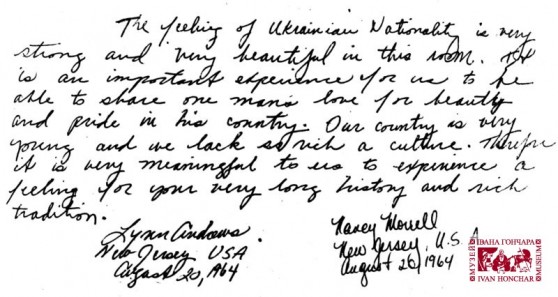 The feeling of Ukrainian Nationality is very
strong and very beautiful in this room. It
is an important experience for us to be
able to share one man's love for beauty
and pride in his country. Our country is very
young and we lack so rich a culture. Therefore
it is very meaningful to us to experience a
feeling for your very long history and rich
tradition.
Lynn Andrews.
New Jersey, USA
August 20, 1964
Nancy Morrell
New Jersey, U.S.A
August 20, 1964
МУЗЕЙ
ІВАНА ГОНЧАРА
IVAN HONCHAR
MUSEUM